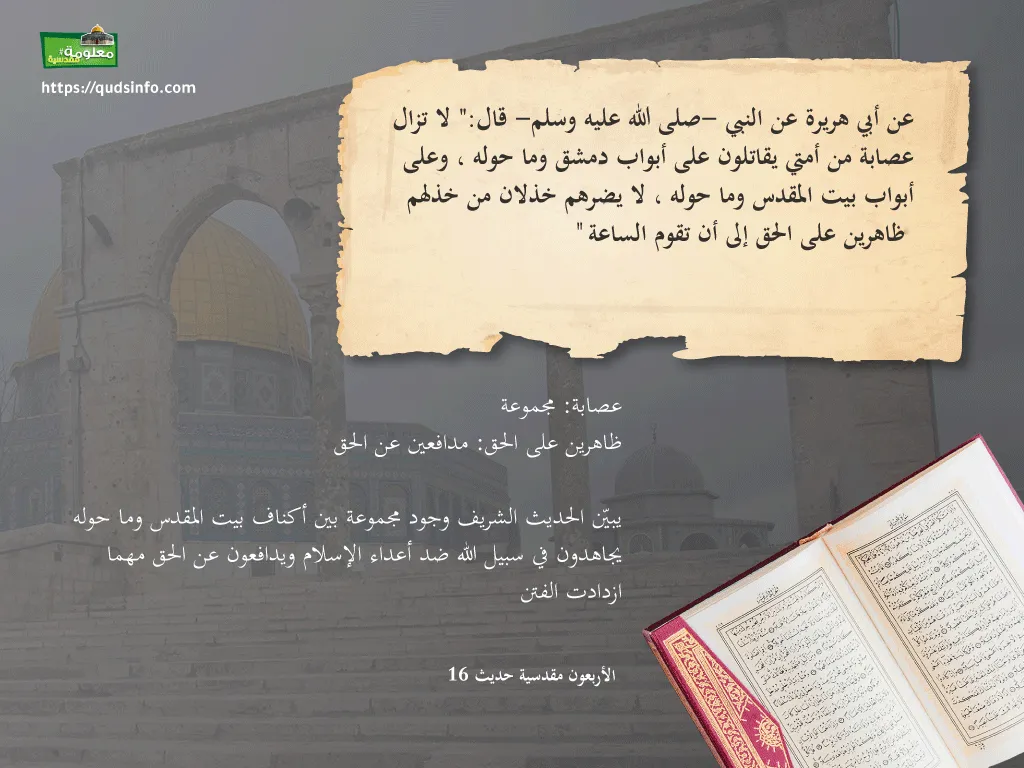 #معلومة
مقدسية
https://qudsinfo.com
عن أبي هريرة عن النبي -صلى الله عليه وسلم- قال:" لا تزال
عصابة من أمتي يقاتلون على أبواب دمشق وما حوله ، وعلى
أبواب بيت المقدس وما حوله ، لا يضرهم خذلان من خذلهم
ظاهرين على الحق إلى أن تقوم الساعة "
عصابة: مجموعة
ظاهرين على الحق: مدافعين عن الحق
يبيّن الحديث الشريف وجود مجموعة بين أكناف بيت المقدس وما حوله
يجاهدون في سبيل الله ضد أعداء الإسلام ويدافعون عن الحق مهما
ازدادت الفتن
الأربعون مقدسية حديث 16